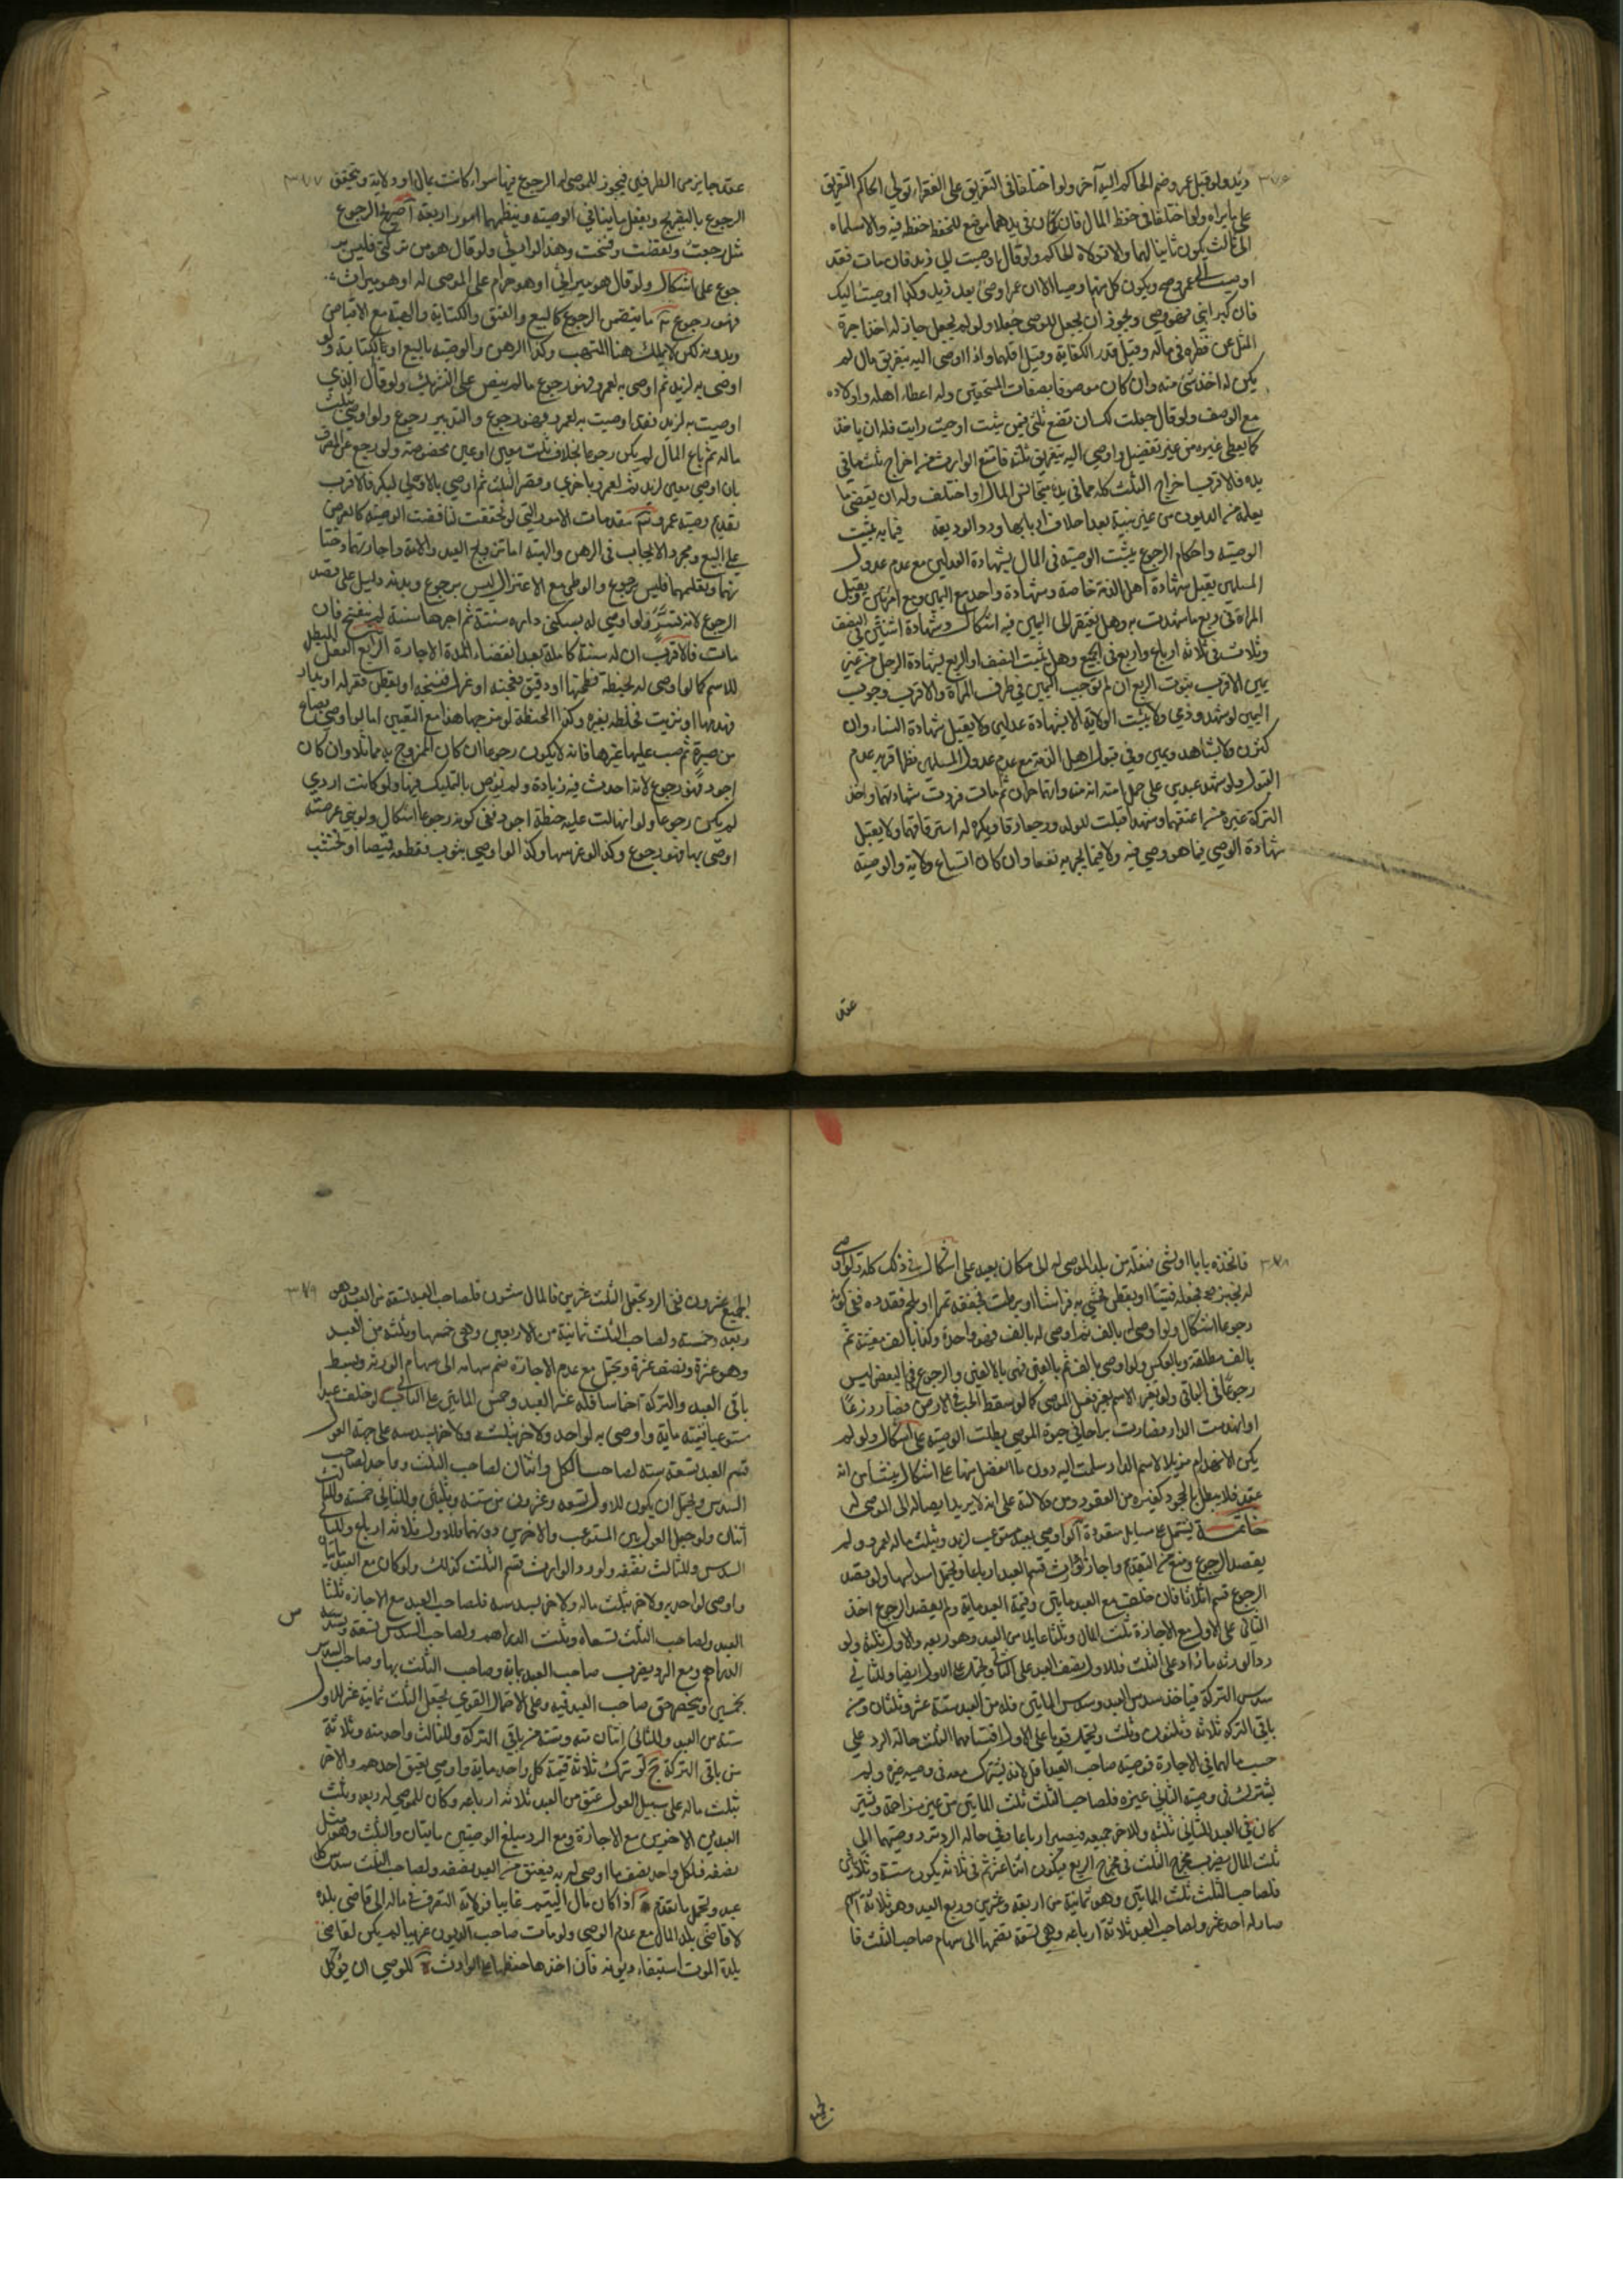 ٣٧٦
زيد ولو قبل عمرو ضم الحاكم اليه آخر ولو اختلفا في التفريق على الفقراء تولى الحاكم التفريق
على ما يراه ولو اختلفا في حفظ المال فان كان في يدهما موضع للحفظ حفظ فيه والا سلماه
الى ثالث يكون نائبا لهما والا تولاه الحاكم ولو قال اوصيت الى زيد فان مات فقد
اوصيت الى عمرو صح ويكون كل منهما وصيا الا ان عمرا وصى بعد زيد وكذا اوصيت اليك
فان كبر ابني فهو وصيي ويجوز ان يجعل للوصي جعلا ولو لم يجعل جاز له اخذ اجرة
المثل عن نظره في ماله وقيل قدر الكفاية وقيل اقلهما واذا اوصى اليه بتفريق مال لم
يكن له اخذ شئ منه وان كان موصوفا بصفات المستحقين وله اعطاء اهله واولاده
مع الوصف ولو قال جعلت لك ان تضع ثلثي فيمن شئت او حيث رايت فله ان ياخذ
كما يعطي غيره من غير تفضيل ولو اوصى اليه بتفريق ثلثه فامتنع الوارث من اخراج ثلث ما في
يده فالاقرب اخراج الثلث كله مما في يده متجانس المال او اختلف وله ان يقضي ما
يعلمه من الديون من غير بينة بعد احلاف اربابها ورد الوديعة فيما به يثبت
الوصية واحكام الرجوع يثبت الوصية في المال بشهادة العدلين مع عدم عدول
المسلمين يقبل شهادة اهل الذمة خاصة وشهادة واحد مع اليمين ومع امراتين ويقبل
المراة في ربع ما شهدت به وهل يفتقر الى اليمين فيه اشكال وشهادة اثنتين في النصف
وثلاث في ثلاثة ارباع واربع في الجميع وهل يثبت النصف او الربع بشهادة الرجل من غير
يمين الاقرب ثبوت الربع ان لم نوجب اليمين في طرف المراة والاقرب وجوب
اليمين لو شهد وذمي ولا يثبت الولاية الا بشهادة عدلين ولا يقبل شهادة النساء وان
كثرن ولا بشاهد ويمين وفي قبول اهل الذمة مع عدم عدول المسلمين نظر اقربه عدم
القبول ولو شهد عبدين على حمل امته انه منه وانهما حران ثم مات فردت شهادتهما واخذ
التركة غيره ثم اعتقهما وشهدا قبلت للولد ورجعا رقا ويكره له استرقاقهما ولا يقبل
شهادة الوصي فيما هو وصي فيه ولا فيما يجر به نفعا وان كان اتساع ولاية والوصية
عقد
٣٧٧
عقد جايز من الطرفين فيجوز للموصي له الرجوع فيها سواء كانت بمال او ولاية ويتحقق
الرجوع بالتصريح وبفعل ما ينافي الوصية وينظمهما امور اربعة آ صريح الرجوع
مثل رجعت ونقضت وفسخت وهذا لوارثي ولو قال هو من تركتي فليس بر
جوع على اشكال ولو قال هو ميراثي او هو حرام على الموصى له او هو ميراث
فهو رجوع ب ما يتضمن الرجوع كالبيع والعتق والكتابة والهبة مع الاقباض
وبدونه لكن لا يملك هنا المتهب وكذا الرهن والوصية بالبيع او بالكتابة ولو
اوصى به لزيد ثم اوصى به لعمرو فهو رجوع ما لم ينص على التشريك ولو قال الذي
اوصيت به لزيد فقد اوصيت به لعمرو فهو رجوع والتدبير رجوع ولو اوصى بثلث
ماله ثم باع المال لم يكن رجوعا بخلاف ثلث معين او عين مخصوصة ولو رجع عن المصرف
بان اوصى بمعين لزيد ثم لعمرو باخرى وقصر الثلث ثم اوصى بالاولى لبكر فالاقرب
تقديم وصية عمرو ج مقدمات الامور التي لو تحققت لناقضت الوصية كالعرض
على البيع ومجرد الايجاب في الرهن والهبة اما تزويج العبد والامة واجارتهما وختا
نهما وتعليمهما فليس برجوع والوطي مع الاعتزال ليس برجوع وبدونه دليل على قصد
الرجوع لانه تسر ولو اوصى له بسكنى داره سنة ثم اجرها سنة لم ينفسخ فان
مات فالاقرب ان له سنة كاملة بعد انقضاء المدة الاجارة الرابع الفعل المبطل
للاسم كما لو اوصى له بحنطة فطحنها او دقيق فعجنه او غزل فنسجه او بقطن فغزله او بدار
فهدمها او بزيت فخلطه بغيره وكذا الحنطة لو مزجها هذا مع التعيين اما لو اوصى بصاع
من صبرة ثم صب عليها غيرها فانه لا يكون رجوعا ان كان الممزوج به مماثلا وان كان
اجود فهو رجوع لانه احدث فيه زيادة ولم يوص بالتمليك فيها ولو كانت اردي
لم يكن رجوعا ولو انهالت عليه حنطة اجود ففي كونه رجوعا اشكال ولو بنى عرصة
اوصى بها فهو رجوع وكذا لو غرسها وكذا لو اوصى بثوب فقطعه قميصا او بخشب
٣٧٨
فاتخذه بابا او بشئ فنقله من بلد الموصى له الى مكان بعيد على اشكال في ذلك كله ولو اوصى
له بخبز فجعله فتيتا او بقطن فحشى به فراشا او برطب فجففه تمرا او بلحم فقدده ففي كونه
رجوعا اشكال ولو اوصى له بالف ثم اوصى له بالف فهو واحدة وكذا بالف معينة ثم
بالف مطلقة وبالعكس ولو اوصى بالف ثم بالفين فهي بالالفين والرجوع في البعض ليس
رجوعا في الباقي ولو تغير الاسم بغير فعل الموصي كما لو سقط الحب في الارض فصار زرعا
او انهدمت الدار فصارت براحا في حيوة الموصي بطلت الوصية على اشكال ولو لم
يكن الانهدام مزيلا لاسم الدار سلمت اليه دون ما انفصل منها على اشكال ينشأ من انه
عقد فلا يبطل بالجحود كغيره من العقود ومن دلالته على انه لا يريد ايصاله الى الموصى له
خاتمة يشتمل على مسايل متعددة آ لو اوصى بعبد مستوعب لزيد وبثلث ماله لعمرو ولم
يقصد الرجوع ومنع من التقديم واجاز الوارث قسم العبد ارباعا ويحتمل اسداسا ولو قصد
الرجوع قسم اثلاثا فان خلف مع العبد مايتين وقيمة العبد ماية ولم يقصد الرجوع اخذ
الثاني على الاول مع الاجازة ثلث المال وثلثا ماية من العبد وهو ربعه والاول ثلثه ولو
رد الورثة ما زاد على الثلث فللاول نصف العبد على الثاني ويحتمل على الاول ايضا وللثاني
سدس التركة فياخذ سدس العبد وسدس المايتين فله من العبد ستة عشر وثلثان ومن
باقي التركة ثلاثة وثلثون وثلث ويحتمل قويا على الاول اقتسامهما الثلث حالة الرد على
حسب مالهما في الاجازة فوصية صاحب العبد اقل لانه يشترك معه في وصيه غيره ولم
يشترك في وصية الثاني غيره فلصاحب الثلث ثلث المايتين من غير مزاحمة ويشتر
كان في العبد للثاني ثلثه وللاخر جميعه فيصير ارباعا وفي حالة الرد ترد وصيتهما الى
ثلث المال يضرب مخرج الثلث في مخرج الربع فيكون اثنا عشر ثم في ثلاثة يكون ستة وثلاثين
فلصاحب الثلث ثلث المايتين وهو ثمانية من اربعة وعشرين وربع العبد وهو ثلاثة اسهم
صار له احد عشر ولصاحب العبد ثلاثة ارباعه وهي تسعة تضمها الى سهام صاحب الثلث فا
لجميع
٣٧٩
لجميع عشرون ففي الرد تجعل الثلث عشرين فالمال ستون فلصاحب العبد تسعة من العبد وهو
ربعه وخمسه ولصاحب الثلث ثمانية من الاربعين وهي خمسها وثلثه من العبد
وهو عشره ونصف عشره ويحتمل مع عدم الاجازة ضم سهامه الى سهام الورثة وبسط
باقي العبد والتركة اخماسا فله عشر العبد وخمس المايتين على الثاني ب لو خلف عبدا
مستوعبا قيمته ماية واوصى به لواحد ولاخر بثلثه ولاخر بسدسه على جهة العول
قسم العبد تسعة ستة لصاحب الكل واثنان لصاحب الثلث وواحد لصاحب
السدس ويحتمل ان يكون للاول تسعة وعشرون من ستة وثلثين وللثاني خمسة وللثالث
اثنان ولو جعل العول بين المستوعب والاخرين دونهما وللاول ثلاثة ارباع وللثاني
السدس وللثالث نصفه ولو رد الوارث قسم الثلث كذلك ولو كان مع العبد مايتان
واوصى لواحد به ولاخر بثلث ماله ولاخر بسدسه فلصاحب العبد مع الاجازة ثلثا
العبد ولصاحب الثلث تسعاه وثلث الدراهم ولصاحب السدس تسعة وسدس
الدراهم ومع الرد يضرب صاحب العبد بماية وصاحب الثلث بها وصاحب السدس
بخمسين وينحصر حق صاحب العبد فيه وعلى الاحتمال القوي يجعل الثلث ثمانية عشر للاول
ستة من العبد وللثاني اثنان منه وستة من باقي التركة وللثالث واحد منه وثلاثة
من باقي التركة ج لو ترك ثلاثة قيمة كل واحد ماية واوصى بعتق احدهم والاخر
بثلث ماله على سبيل العول عتق من العبد ثلاثة ارباعه وكان للموصى له ربعه وثلث
العبدين الاخرين مع الاجازة ومع الرد مبلغ الوصيتين مايتان والثلث وهو مثل
نصفه فلكل واحد نصف ما اوصى له به فيعتق من العبد نصفه ولصاحب الثلث سدس كل
عبد ويحتمل ما تقدم د اذا كان مال اليتيم غايبا فولاية التصرف في ماله الى قاضي بلده
لا قاضي بلد المال مع عدم الوصي ولو مات صاحب الديون غريبا لم يكن لقاضي
بلدة الموت استيفاء ديونه فان اخذها حفظها على الوارث ه للوصي ان يوكل